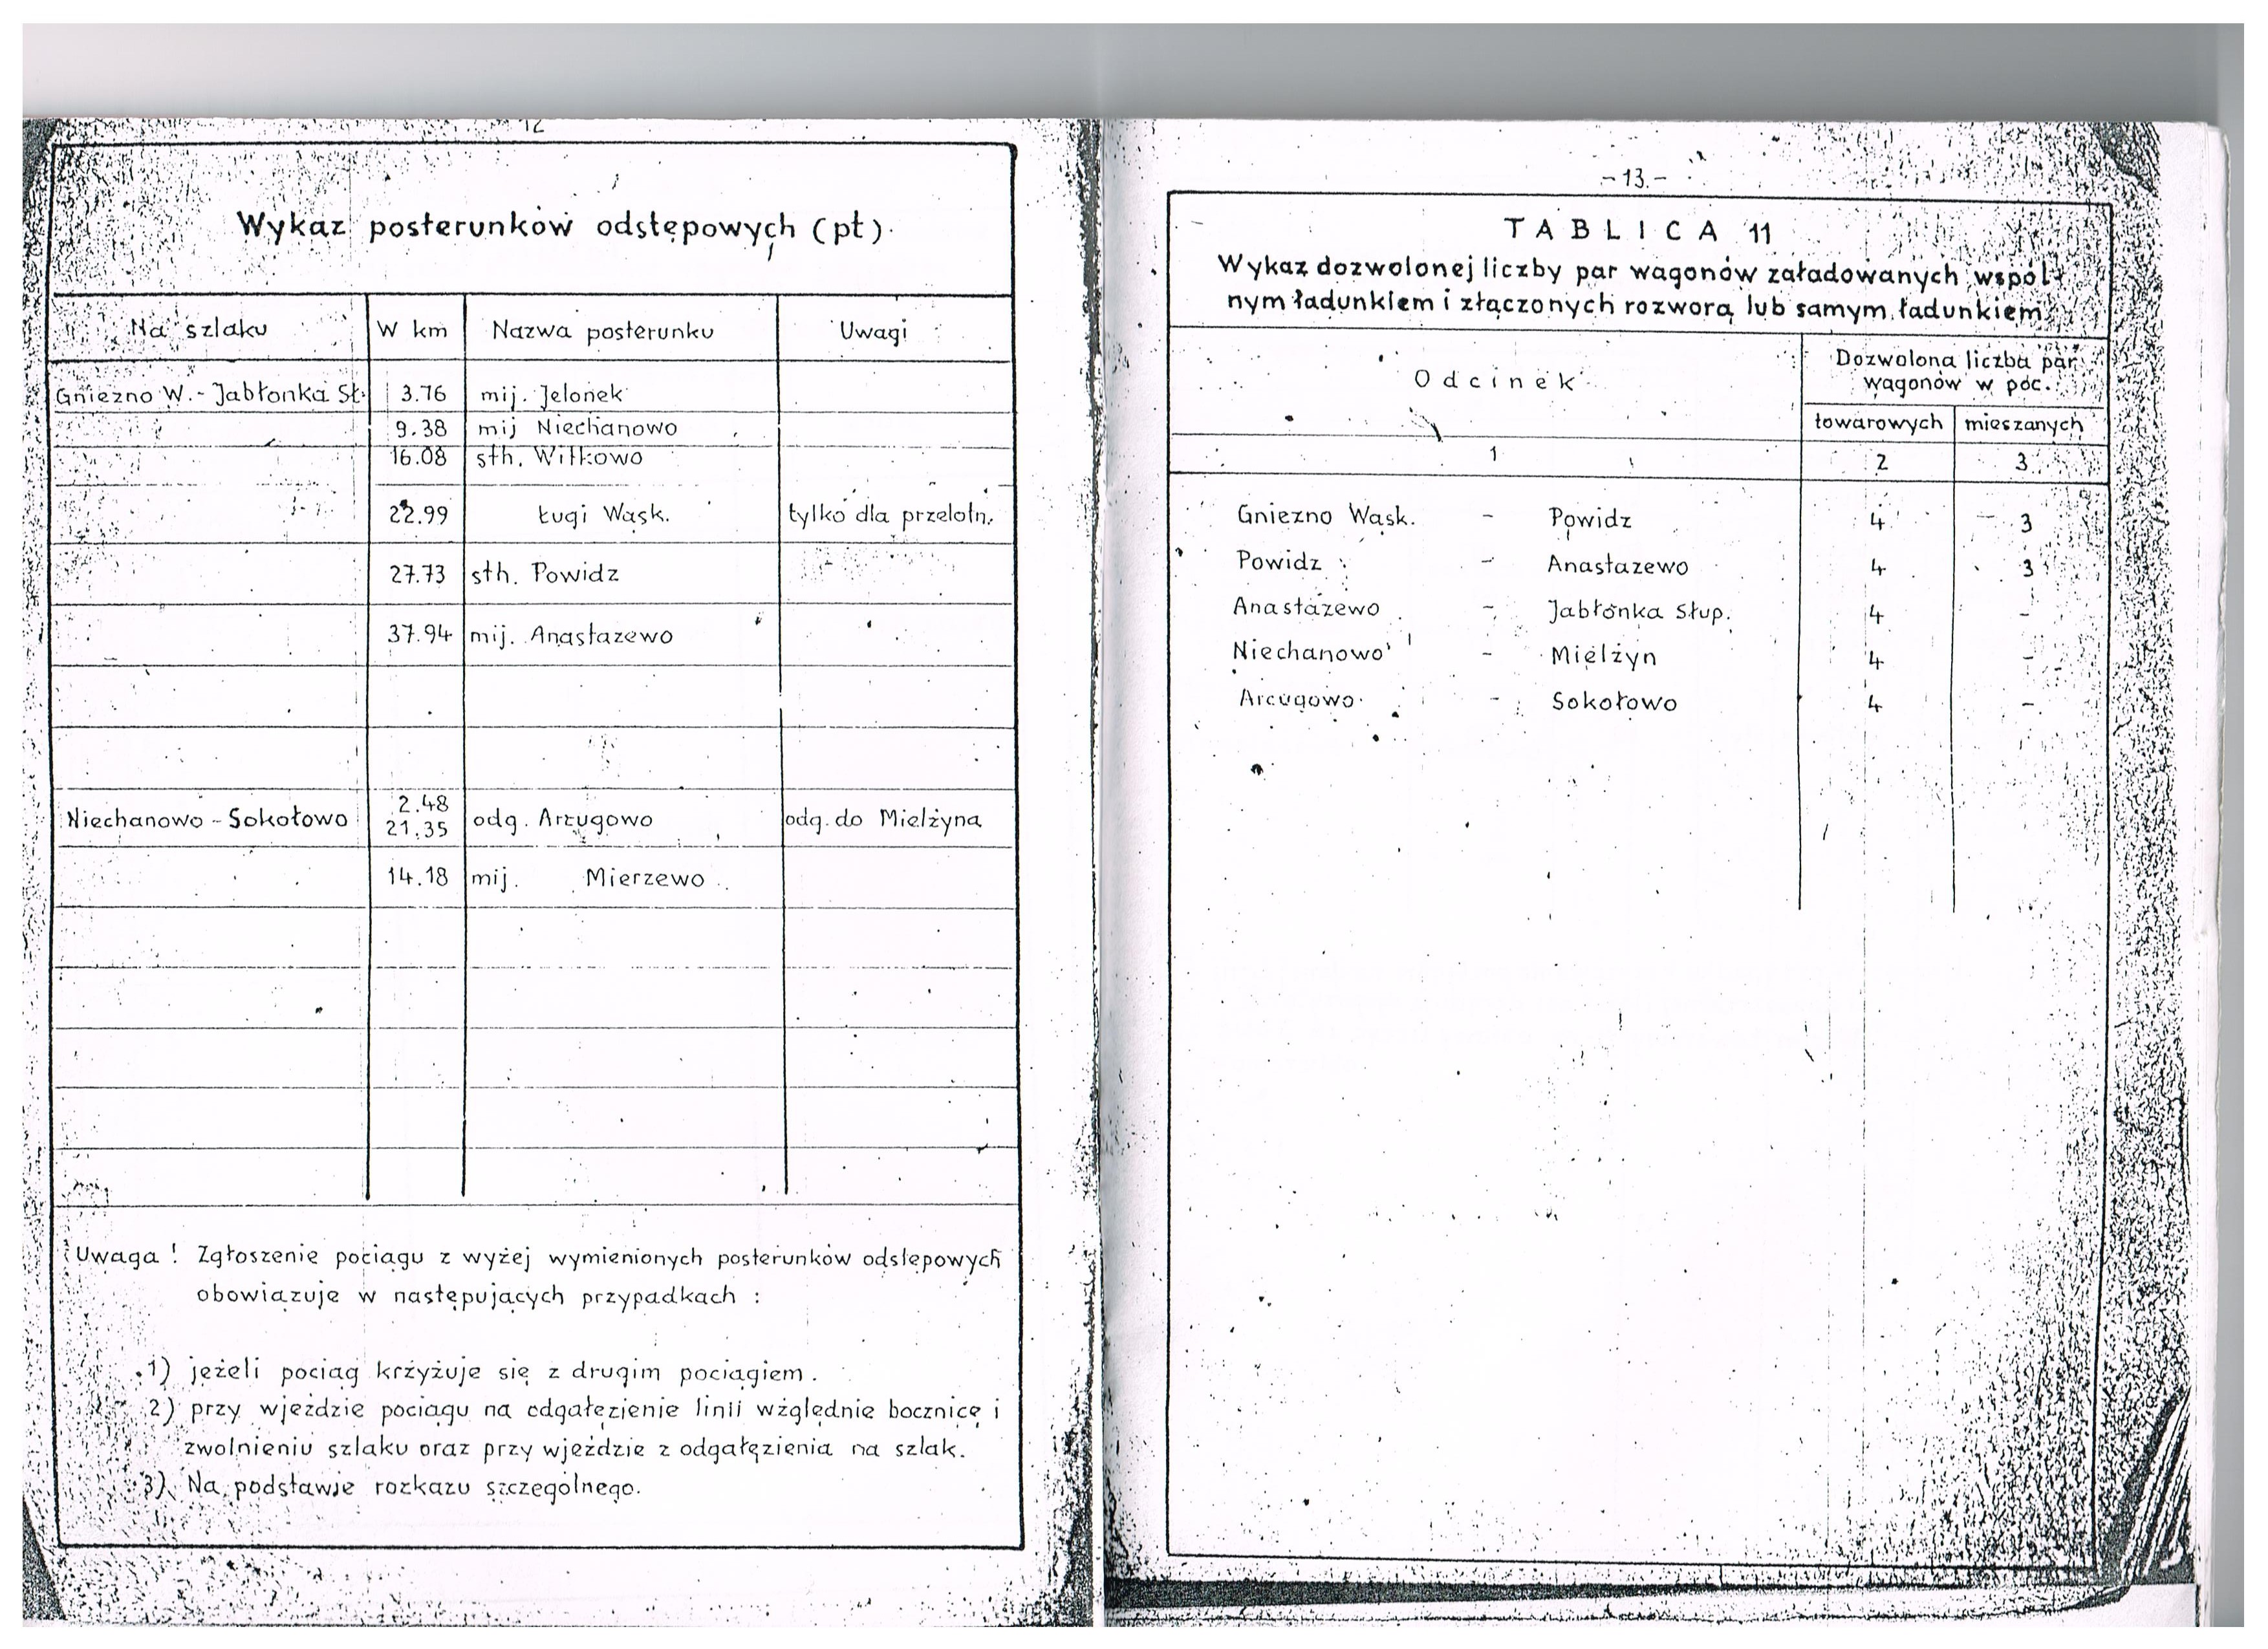 12
Wykaz posterunków odstępowych (pt).
Na szlaku W km Nazwa posterunku Uwagi
Gniezno W. - Jabłonka Sł. 3.76 mij. Jelonek
9.38 mij Niechanowo
16.08 sth. Witkowo
22.99 Ługi Wąsk. tylko dla przelotn.
27.73 sth. Powidz
37.94 mij. Anastazewo
2.48
Niechanowo - Sokołowo 21.35 odg. Arcugowo odg. do Mielżyna
14.18 mij. Mierzewo
Uwaga ! Zgłoszenie pociągu z wyżej wymienionych posterunków odstępowych
obowiązuje w następujących przypadkach :
1) jeżeli pociąg krzyżuje się z drugim pociągiem.
2) przy wjeździe pociągu na odgałęzienie linii względnie bocznicę i
zwolnieniu szlaku oraz przy wjeździe z odgałęzienia na szlak.
3) Na podstawie rozkazu szczególnego.
- 13. -
TABLICA 11
Wykaz dozwolonej liczby par wagonów załadowanych wspól-
nym ładunkiem i złączonych rozworą lub samym ładunkiem
Odcinek Dozwolona liczba par
wagonów w poc.
towarowych mieszanych
1 2 3
Gniezno Wąsk. - Powidz 4 3
Powidz - Anastazewo 4 3
Anastazewo - Jabłonka Słup. 4 -
Niechanowo - Mielżyn 4 -
Arcugowo - Sokołowo 4 -